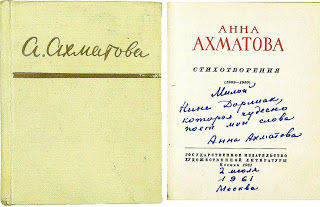 А. Ахматова
АННА
АХМАТОВА
СТИХОТВОРЕНИЯ
(1909–1960)
Милой
Нине Дорлиак,
которая чудесно
поет мои слова
Анна Ахматова
ГОСУДАРСТВЕННОЕ ИЗДАТЕЛЬСТВО
ХУДОЖЕСТВЕННОЙ ЛИТЕРАТУРЫ
Москва 1961
2 июля
1961
Москва